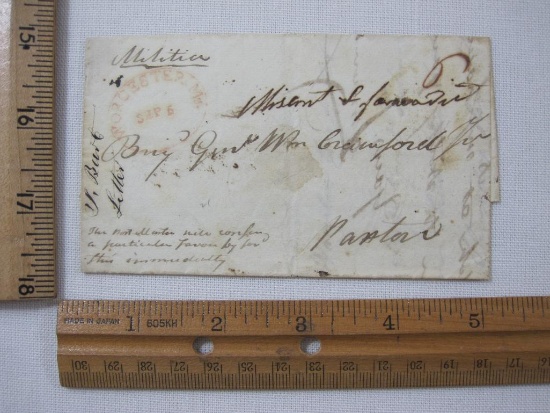 Militia
WORCESTER MS.
SEP 6
6
Missent & forwarded
Brig. Genl. Wm Crawford Jr
Paxton
S. Burt
Letter
The Post Master will confer
a particular favour by for'd
this immediately
15
16
17
18
MADE IN JAPAN 1 605KH 2 3 4 5
30 29 28 27 26 25 24 23 22 21 20 19 18 17